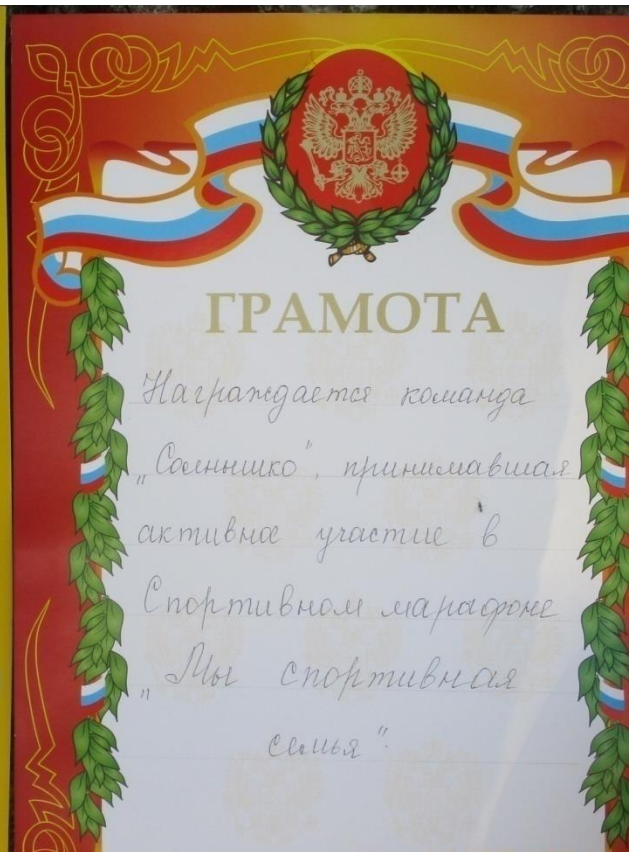 ГРАМОТА
Награждается команда
„Солнышко", принимавшая
активное участие в
Спортивном марафоне
„Мы спортивная
семья".